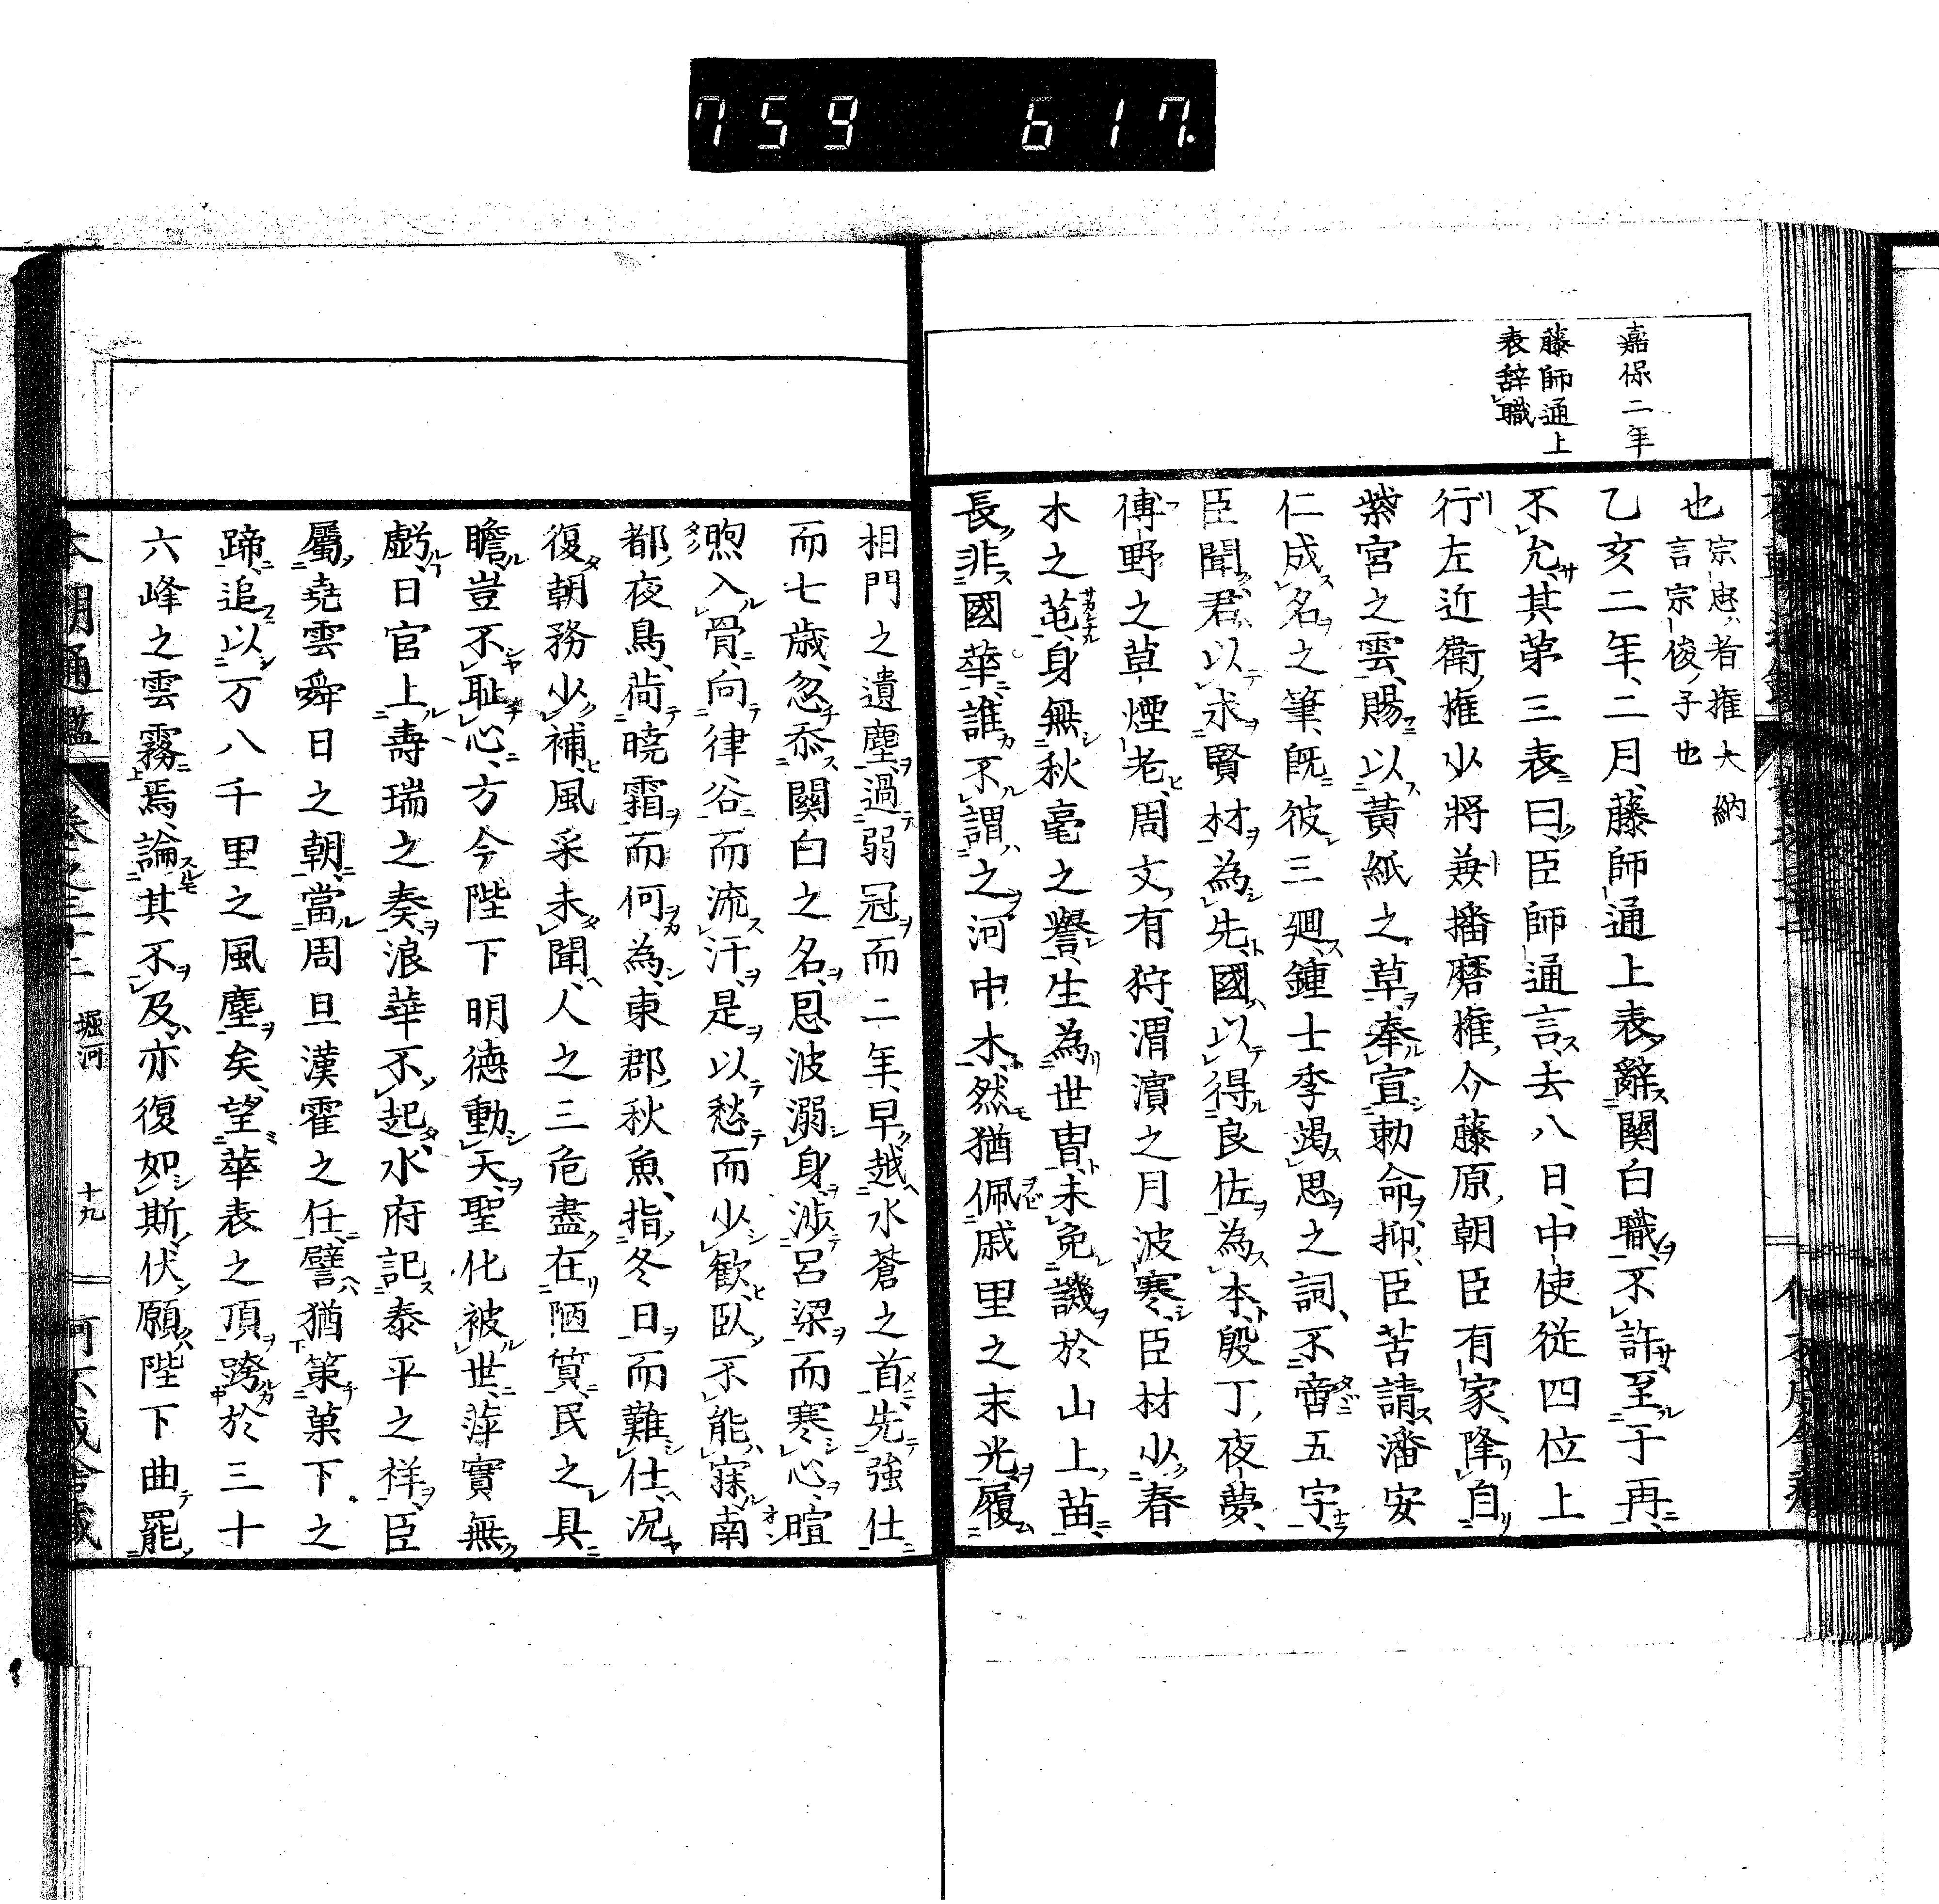 759 617.
嘉保二年
藤師通上
表辞職
也宗忠者権大納
言宗俊子也
乙亥二年二月藤師通上表辭關白職不許至于再
不允其第三表曰臣師通言去八日中使從四位上
行左近衛権少將兼播磨権介藤原朝臣有家降自
紫宮之雲賜以黃紙之草奉宣勅命抑臣苦請潘安
仁成名之筆既彼三廻鍾士季竭思之詞不啻五字
臣聞君以求賢材為先國以得良佐為本殷丁夜夢
傅野之草煙老周文有狩渭濱之月波寒臣材少春
木之芚身無秋毫之譽生為世冑未免譏於山上苗
長非國華誰不謂之河中木然猶佩戚里之末光履
相門之遺塵過弱冠而二年早越水蒼之首先強仕
而七歲忽忝關白之名恩波溺身渉呂梁而寒心暄
煦入骨向律谷而流汗是以愁而少歡臥不能寐南
都夜鳥荷曉霜而何為東郡秋魚指冬日而難仕況
復朝務少補風采未聞人之三危盡在陋質民之具
瞻豈不耻心方今陛下明德動天聖化被世萍實無
虧日官上壽瑞之奏浪華不起水府記泰平之祥臣
屬堯雲舜日之朝當周旦漢霍之任譬猶策菓下之
蹄追以万八千里之風塵矣望華表之頂跨於三十
六峰之雲霧焉論其不及亦復如斯伏願陛下曲罷
本朝通鑑 卷之三十二 堀河 十九